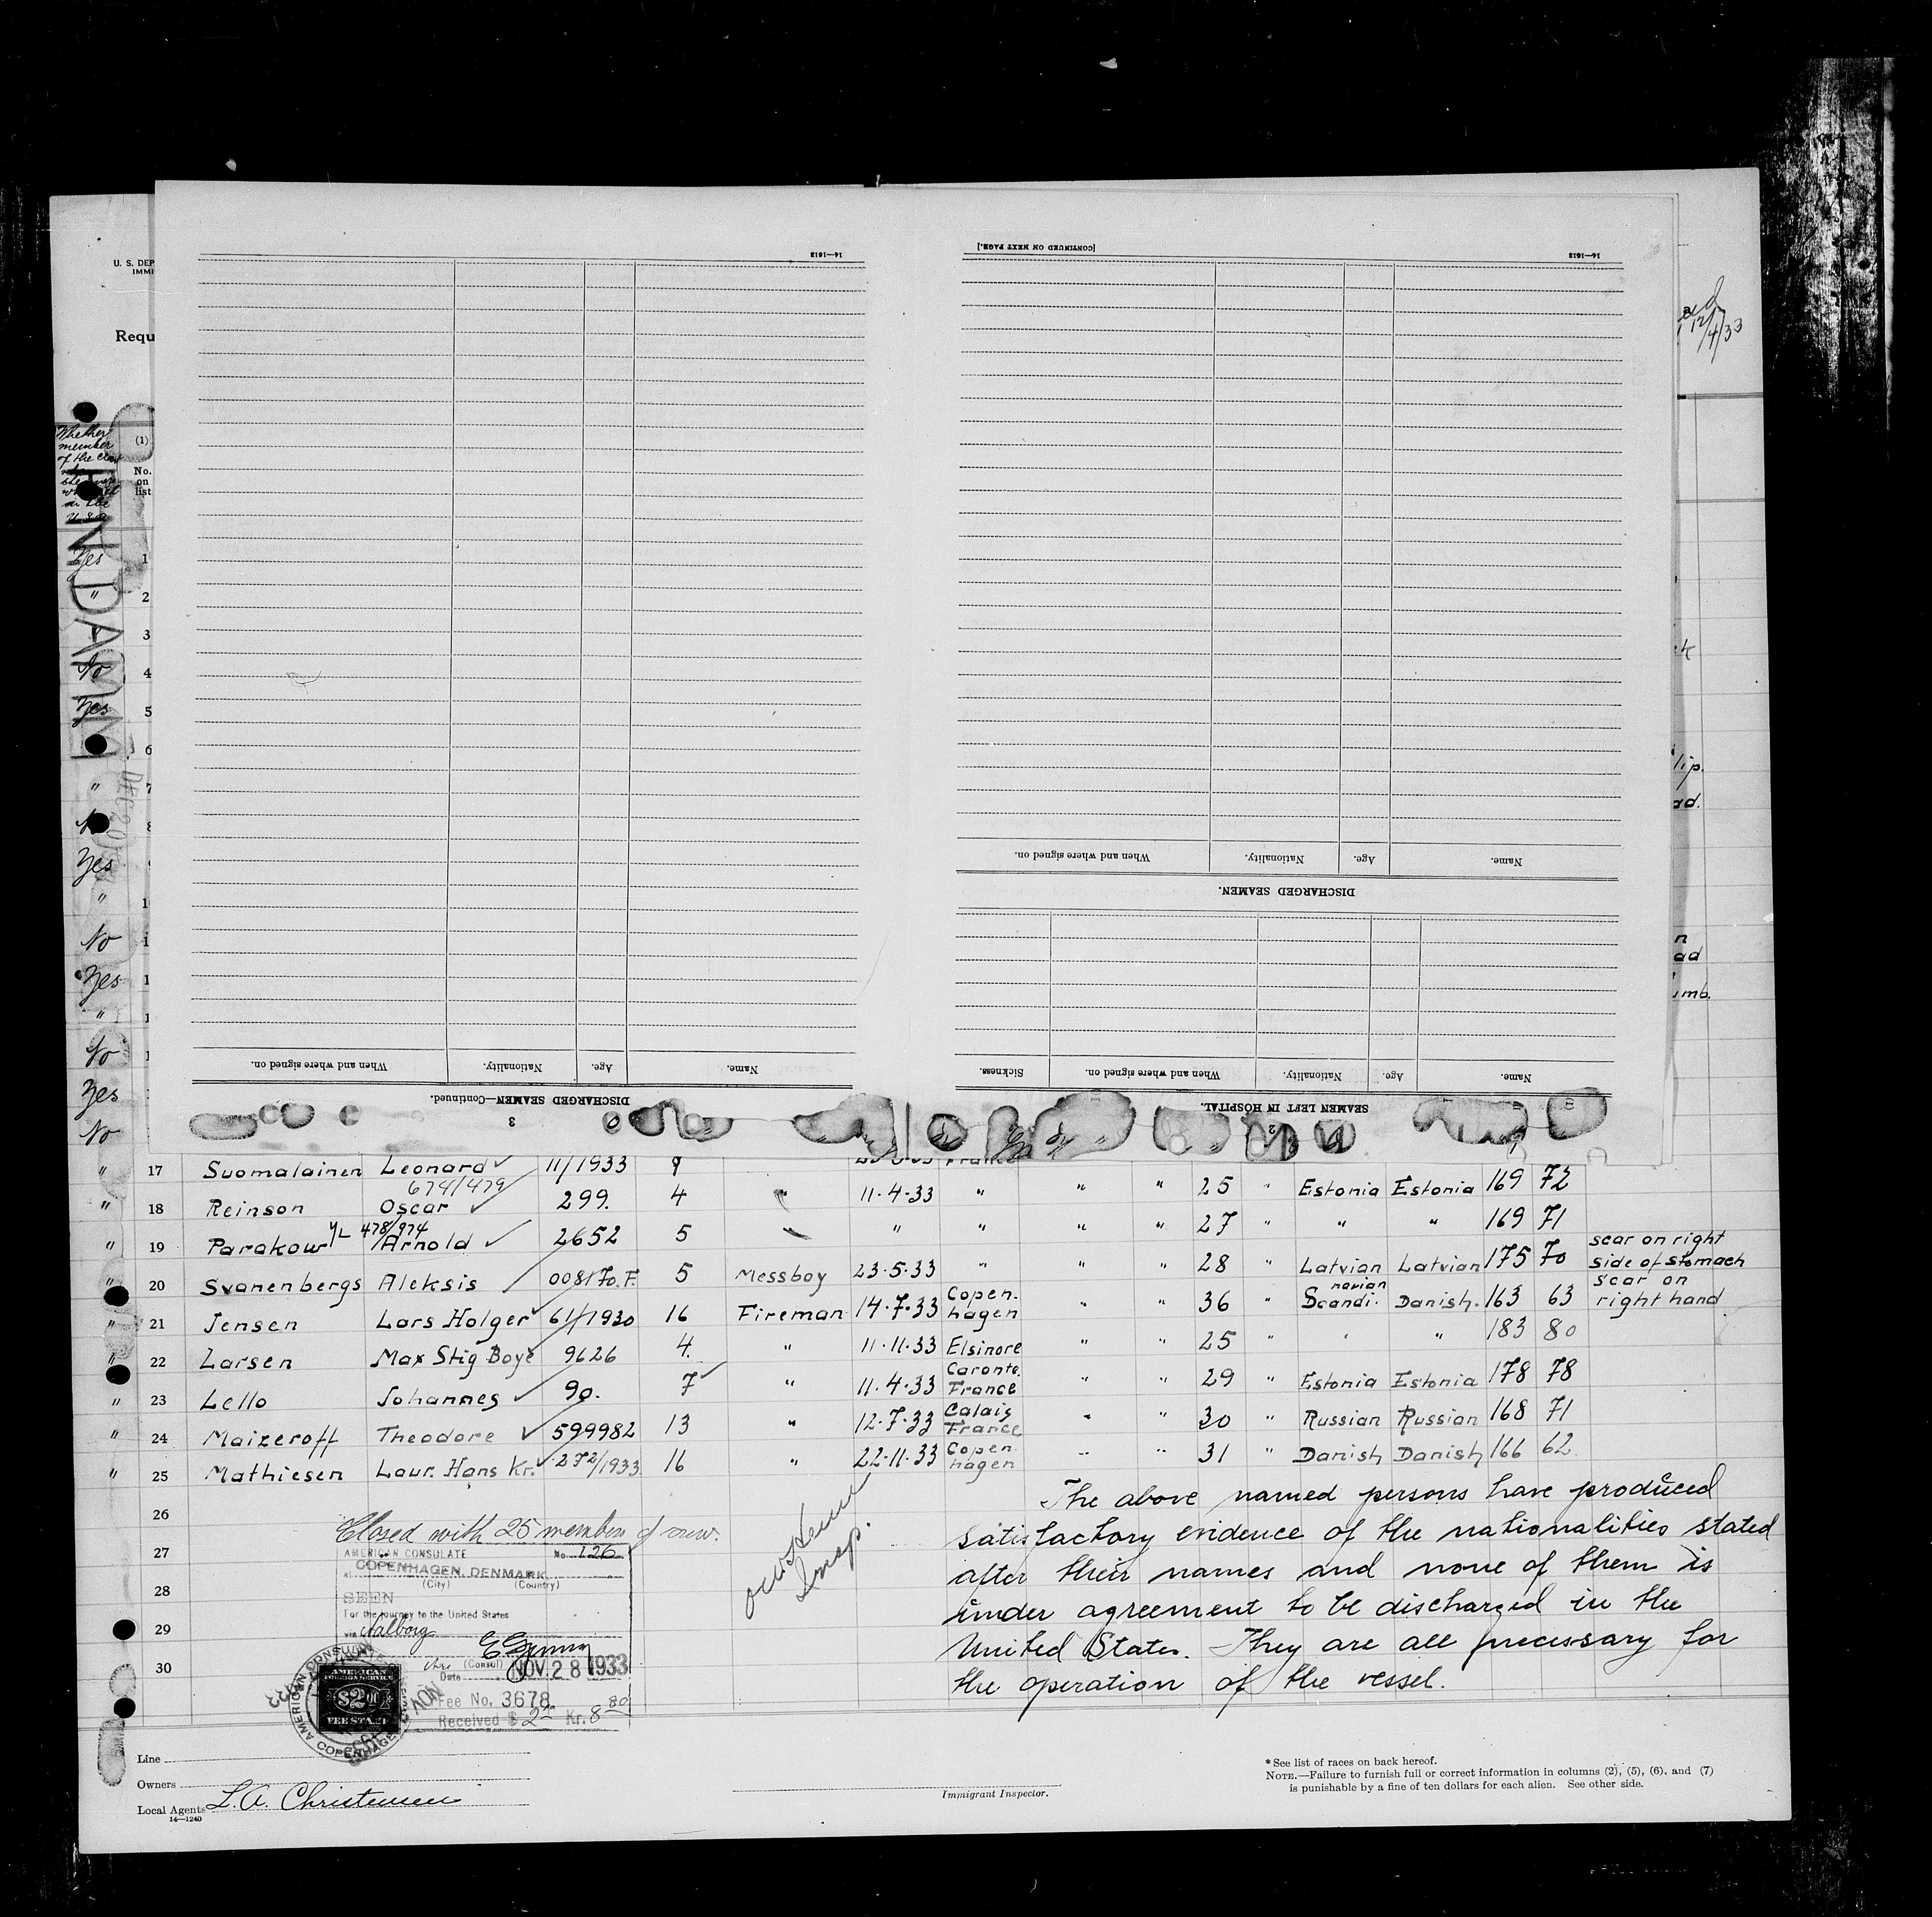 U. S. DEP
IMMI
Requ
12/4/33
[CONTINUED ON NEXT PAGE.]
14—1612
14—1612
Whether
member
of the crew
(1)
No.
on
list
Yes 1
" 2
3
No 4
Yes 5
6
" 7
8
Yes
"
No
Yes
"
No
Yes
No
lip.
ad.
n
ad
umb.
When and where signed on. Nationality. Age. Name.
DISCHARGED SEAMEN.
Sickness. When and where signed on. Nationality. Age. Name.
SEAMEN LEFT IN HOSPITAL.
2
When and where signed on. Nationality. Age. Name.
DISCHARGED SEAMEN—Continued.
3
" 17 Suomalainen Leonard 11/1933 9 France
674/479
" 18 Reinson Oscar 299. 4 " 11.4.33 " " " 25 " Estonia Estonia 169 72
478/974
" 19 Parakow Arnold 2652 5 " " " " 27 " " " 169 71
" 20 Svanenbergs Aleksis 008170.F. 5 Messboy 23.5.33 " " " 28 " Latvian Latvian 175 70 scar on right side of stomach
" 21 Jensen Lars Holger 61/1930 16 Fireman 14.7.33 Copenhagen " " 36 " Scandi.navian Danish. 163 63 scar on right hand
" 22 Larsen Max Stig Boye 9626 4. " 11.11.33 Elsinore " " 25 " " " 183 80
" 23 Lello Johannes 90. 7 " 11.4.33 Caronte. France " " 29 " Estonia Estonia 178 78
" 24 Maizeroff Theodore 599982 13 " 12.7.33 Calais France " " 30 " Russian Russian 168 71
" 25 Mathiesen Laur. Hans Kr. 272/1933 16 " 22.11.33 Copenhagen " " 31 " Danish Danish 166 62
26
27
28
29
30
The above named persons have produced
satisfactory evidence of the nationalities stated
after their names and none of them is
under agreement to be discharged in the
United States. They are all necessary for
the operation of the vessel.
Closed with 25 members of crew.
AMERICAN CONSULATE No. 126
at COPENHAGEN, DENMARK
(City) (Country)
SEEN
For the journey to the United States
via Aalborg
(Consul)
Date NOV. 28 1933
Fee No. 3678
Received $ 2 Kr. 8 80
AMERICAN
FOREIGN SERVICE
$2.00
FEE STAMP
AMERICAN CONSULATE
COPENHAGEN
Insp.
Line
Owners
Local Agents L. A. Christensen
14—1240
Immigrant Inspector.
* See list of races on back hereof.
NOTE.—Failure to furnish full or correct information in columns (2), (5), (6), and (7)
is punishable by a fine of ten dollars for each alien. See other side.